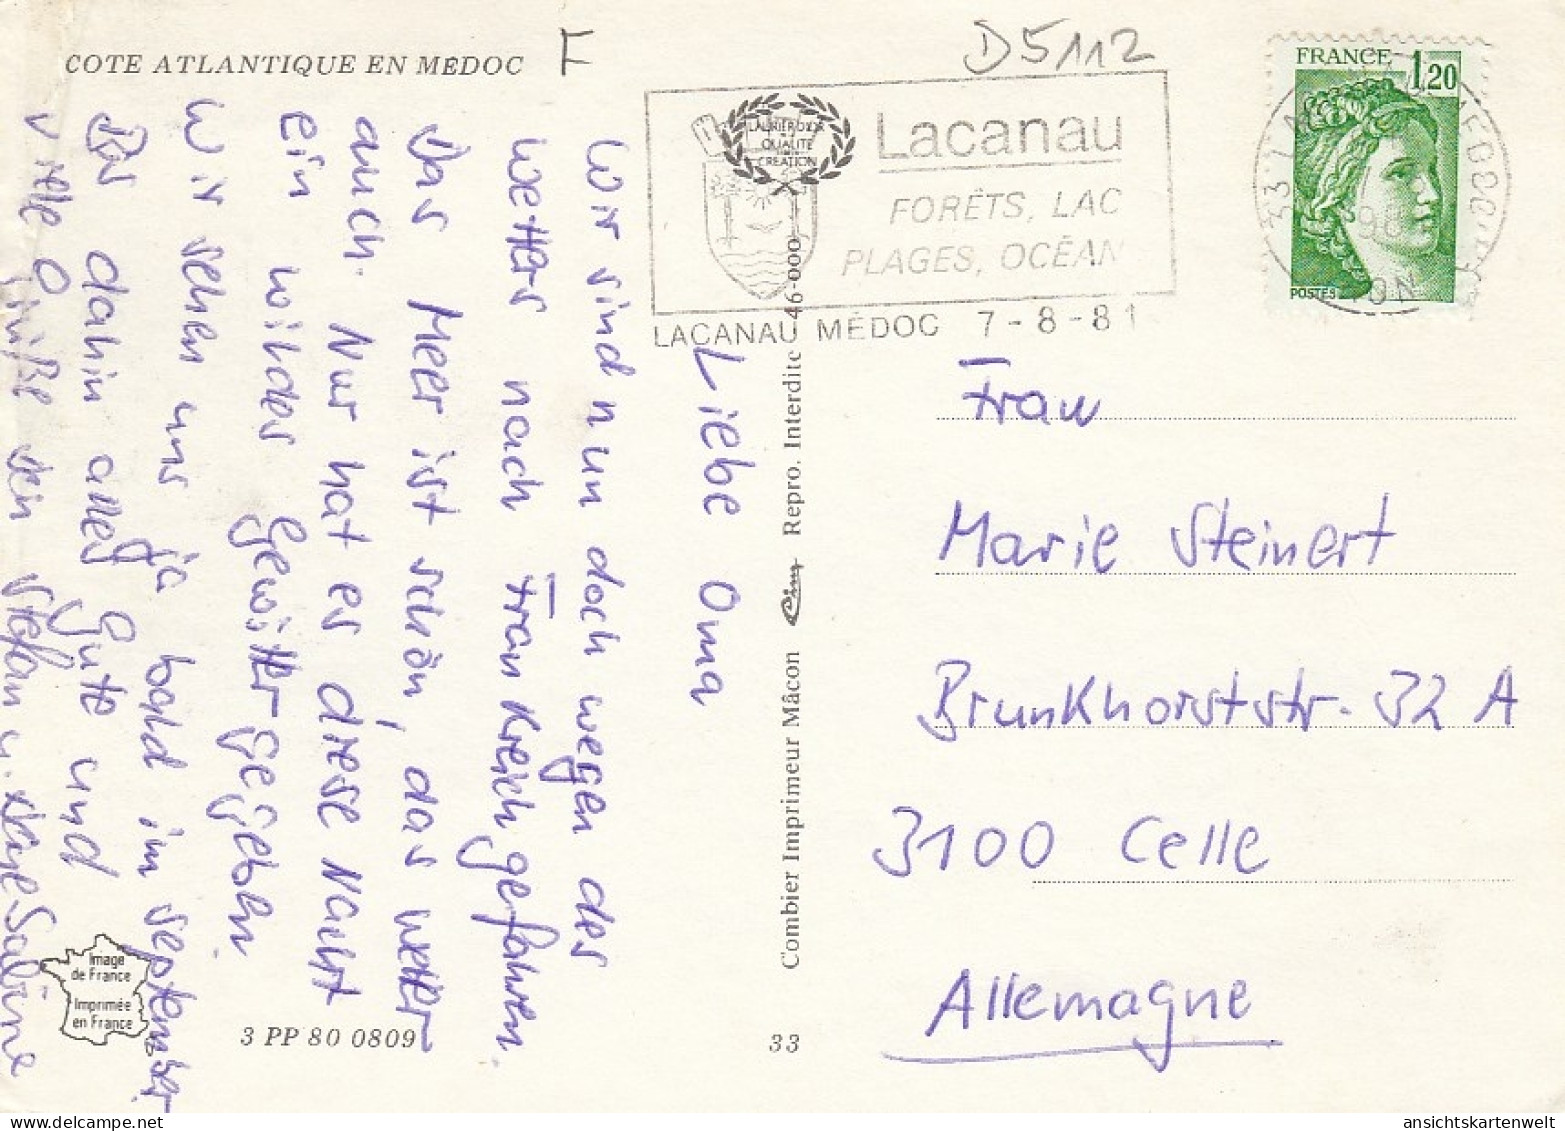 COTE ATLANTIQUE EN MEDOC
F
D5112
LAURIER D'OR
QUALITE
CREATION
Lacanau
FORÊTS, LAC
PLAGES, OCÉAN
LACANAU MÉDOC 7-8-81
FRANCE 1,20
POSTES
Liebe Oma
Wir sind nun doch wegen des
wetters nach Frankreich gefahren.
Das Meer ist schön, das wetter
auch. Nur hat es diese Nacht
ein wildes Gewitter gegeben.
Wir sehen uns ja bald im September
Bis dahin alles Gute und
viele Grüße dein Stefan u. deine Sabine
Combier Imprimeur Mâcon Cim Repro. Interdite 46-000
Frau
Marie Steinert
Brunkhorststr. 32 A
3100 Celle
Allemagne
Image
de France
Imprimée
en France
3 PP 80 0809
33
ansichtskartenwelt